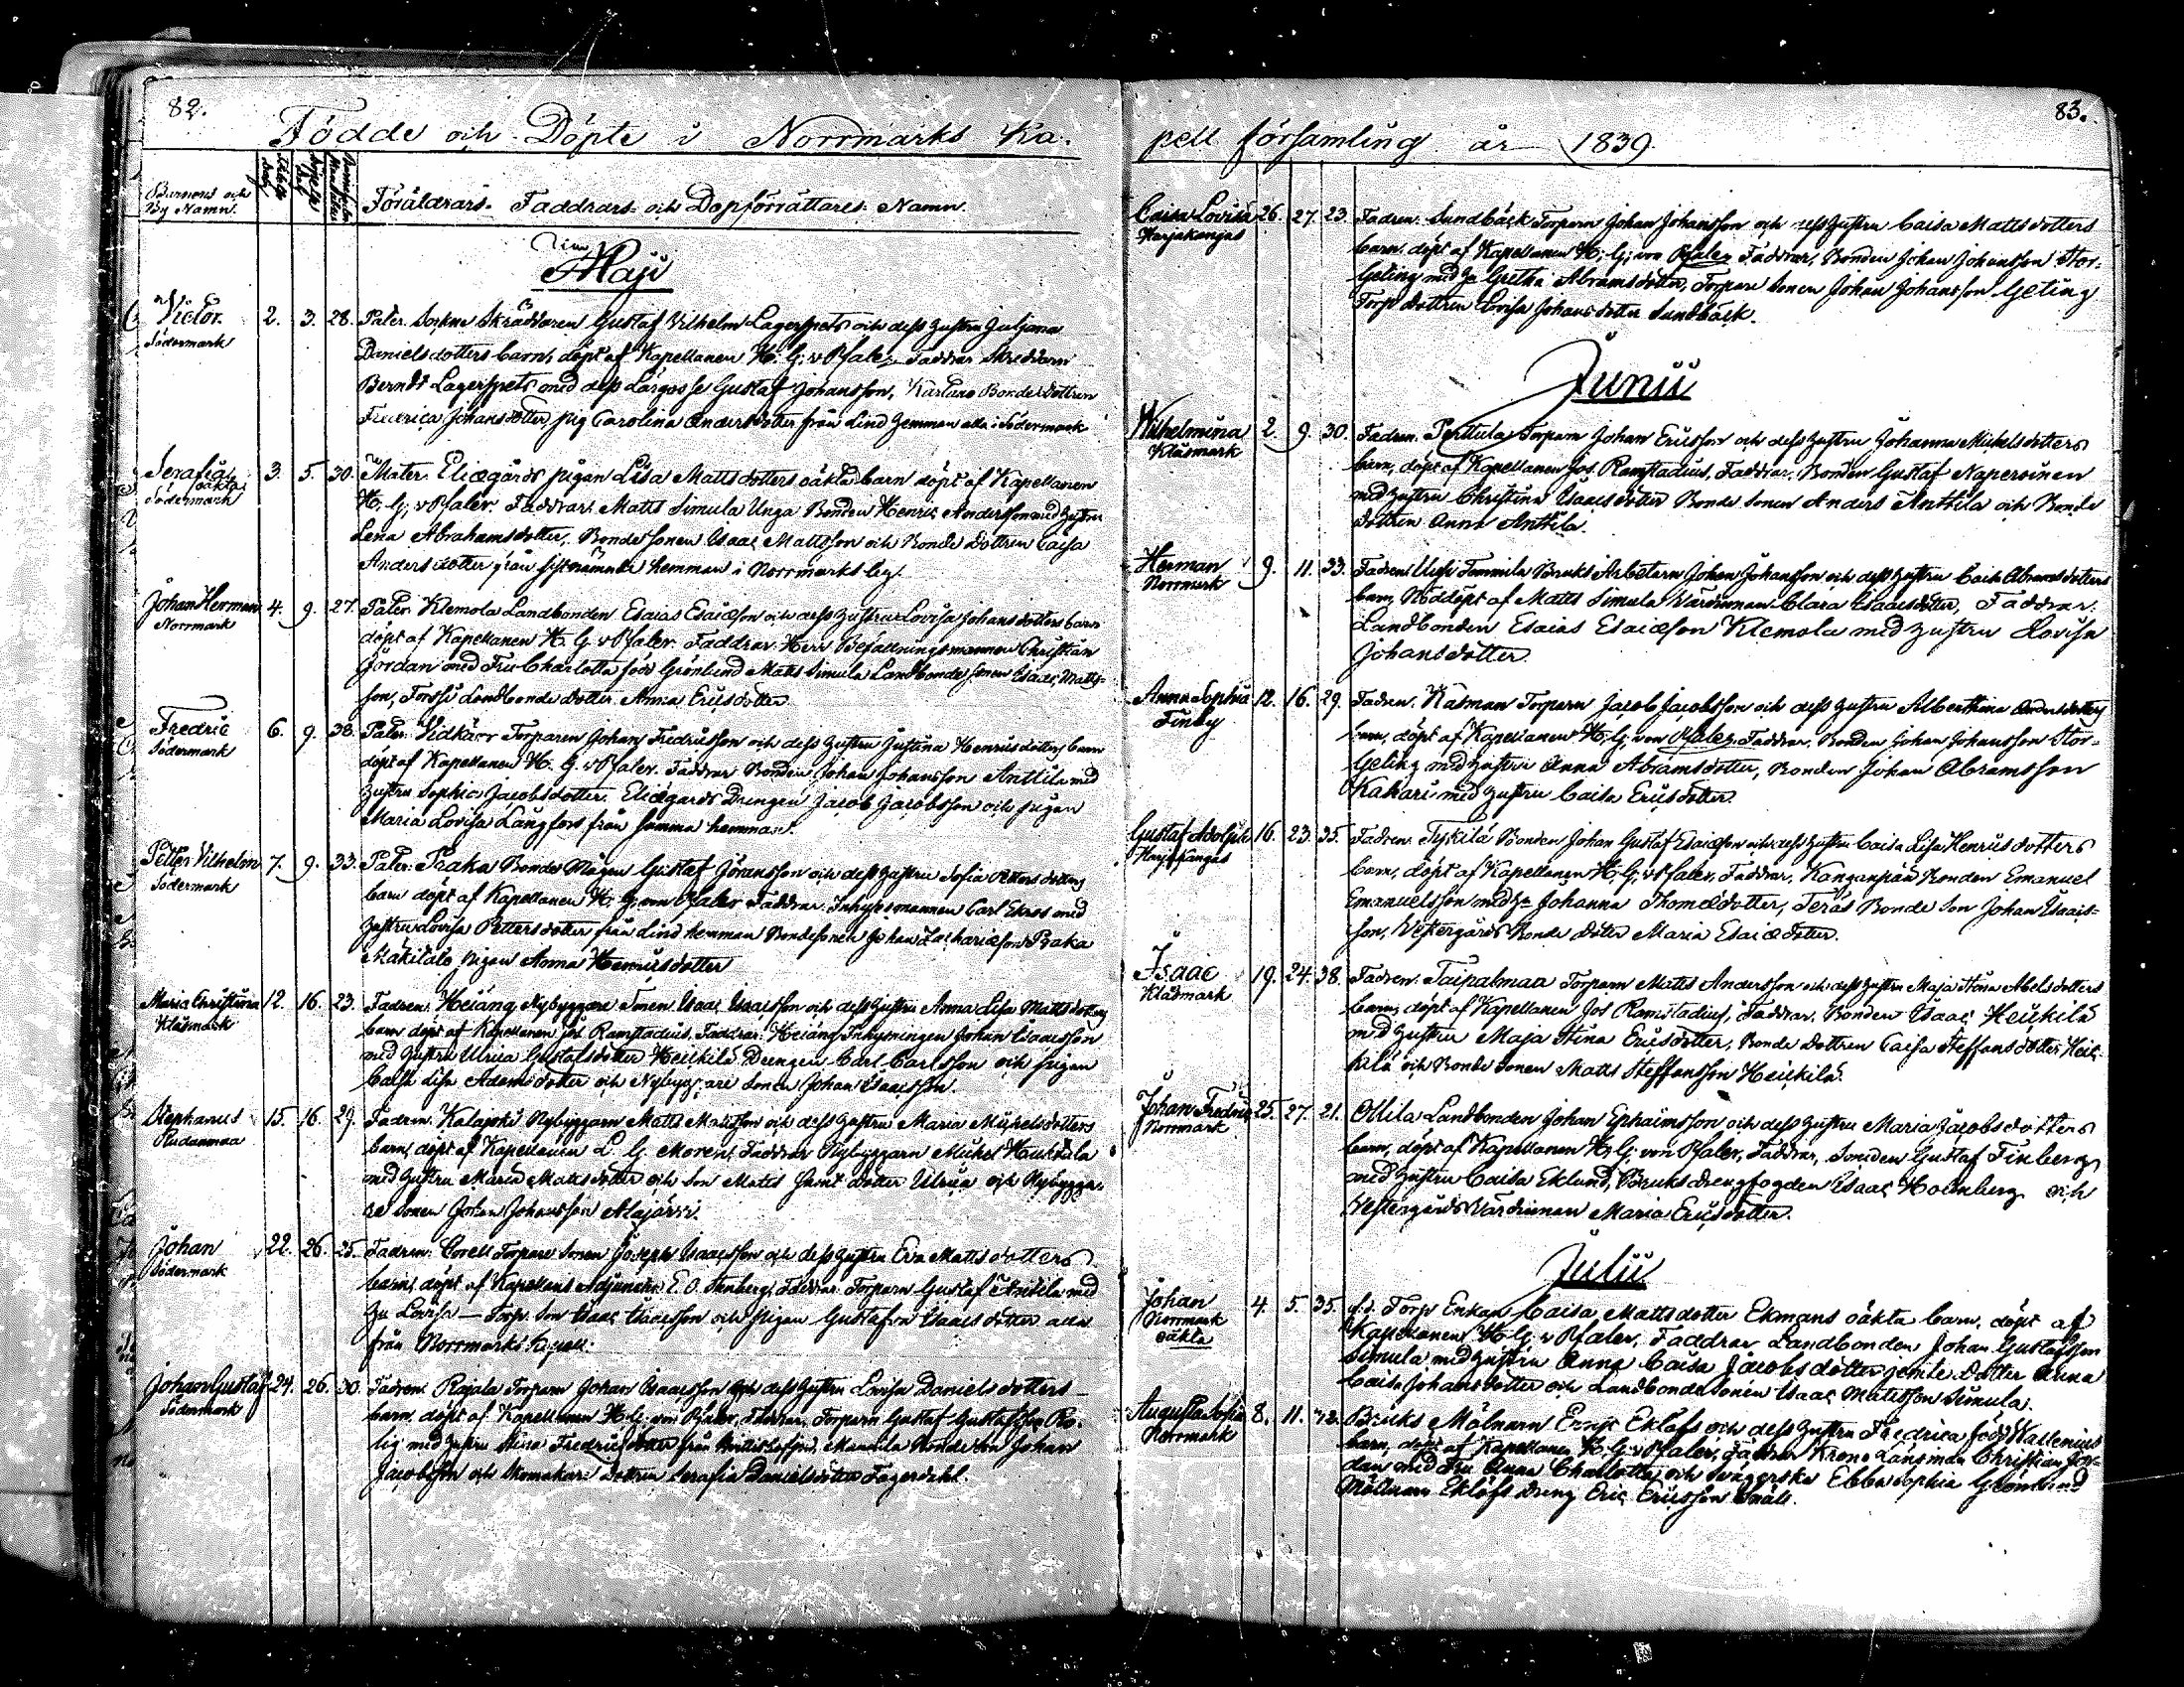 82.
Födde och Döpte i Norrmarks Ka-
Barnens och
By Namn.
Föräldrars Faddrars och Dopförrättares Namn.
Maji
Victor
Södermark
2. 3. 28. Pater. Sockne Skräddaren Gustaf Vilhelm Lagerspets och dess hustru Juljana
Danielsdotters barn, döpt af Kapellanen H. G. v Pfaler Faddrar Skreddarn
Berndt Lagerspets med dess Lärgosse Gustaf Johansson, Bondedottren
Frederica Johansdotter pig Carolina Andersdotter från Lind hemman alla i Södermark
Serafia
oäkta
Södermark
3. 5. 30. Mater. Eliægårds pigan Lisa Mattsdotters oäkta barn döpt af Kapellanen
H. G. v Pfaler. Faddrar. Matts Simula Unga Bonden Henric Andersson med hustru
Lena Abrahamsdotter, Bonde Sonen Isaac Mattsson och Bonde dottren Caisa
Andersdotter från sistnämnda hemman i Norrmarks by.
Johan Herman
Norrmark
4. 9. 27. Pater. Klemola Landbonden Esaias Esaiæson och dess hustru Lovisa Johansdotters barn
döpt af Kapellanen H. G. v Pfaler. Faddrar. Herr Befallningsmannen Christian
Jördan med Fru Charlotta född Grönlund Matts Simula Landbonde sonen Isaac Matts-
son, Forssi Landbonde dotter Anna Ericsdotter
Fredric
Södermark
6. 9. 38. Pater. Vidkärr Torparen Johan Fredricsson och dess hustru Justina Henricsdotters barn
döpt af Kapellanen H. G. v Pfaler. Faddrar Bonden Johan Johansson Anttila med
hustru Sophia Jacobsdotter. Eliægards Drengen Jacob Jacobsson och pigan
Maria Lovisa Långfors från samma hemman.
Petter Vilhelm
Södermark
7. 9. 33. Pater. Praka Bonde Mågen Gustaf Göransson och dess hustru Sofia Pettersdotters
barn döpt af Kapellanen H. G. von Pfaler Faddrar. Inhysesmannen Carl Ekros med
hustru Lovisa Pettersdotter från Lind hemman Bondesonen Johan Zachariæson Praka
Mäkitalo pigan Anna Henricsdotter
Maria Christina
Klåsmark
12. 16. 23. Fadren. Heiäng Nybyggare Sonen Isaac Isaacsson och dess hustru Anna Lisa Mattsdotters
barn döpt af Kapellanen Jos Ramstadius. Faddrar. Heiäng Inhysningen Johan Isaacsson
med hustru Ulrica Gustafsdotter Heickilä Drengen Carl Carlsson och pigan
Caisa Lisa Adamsdotter och Nybyggare sonen Johan Isaacsson.
Stephanus
15. 16. 29. Fadren. Nybyggarn Matts Mattsson och dess hustru Maria Michelsdotters
barn, döpt af Kapellanen L. G. Moren, Faddrar Nybyggarn Michel
med hustru Maria Mattsdotter och son Matts samt dotter Ulrica och Nybygga-
re sonen Johan Johansson Alajärvi.
Johan
Södermark
22. 26. 25. Fadren. Corell Torpare Sonen Joseph Isaacsson och dess hustru Eva Mattsdotters
barn, döpt af Kapellans Adjuncten E. O. Stenberg, Faddrar. Torparn Gustaf Anttila med
hu Lovisa — Torp. Son Isaac Isaacsson och Pigan Gustafva Isaacsdotter alla
från Norrmarks Kapell.
Johan Gustaf
Södermark
24. 26. 30. Fadren. Rajala Torparn Johan Isaacsson och dess hustru Lovisa Danielsdotters
barn, döpt af Kapellanen H. G. von Pfaler, Faddrar. Torparn Gustaf Gustafsson Ro-
lig med hustru Stina Fredricsdotter från Mannila Bonde Son Johan
Jacobsson och Skomakare Dottren Serafia Danielsdotter Fagerdahl.
83.
pell församling år 1839
Caisa Lovisa
Harjakangas
26. 27. 23. Fadren. Sundbäck Torparn Johan Johansson och dess hustru Caisa Mattsdotters
barn, döpt af Kapellanen H. G. von Pfaler Faddrar, Bonden Johan Johansson Stor-
Geting med hu Gretha Abramsdotter, Torpare Sonen Johan Johansson Geting
Torp dottren Lovisa Johansdotter Sundbäck.
Junii
Wilhelmina
Klåsmark
2. 9. 30. Fadren. Perttula Torparn Johan Ericsson och dess hustru Johanna Michelsdotters
barn, döpt af Kapellanen Jos. Ramstadius, Faddrar. Bonden Gustaf Naperoinen
med hustru Christina Isaacsdotter Bonde Sonen Anders Anttila och Bonde
dottren Anna Anttila.
Herman
Norrmark
9. 11. 33. Fadren. Uusi Tommila Bruks Arbetarn Johan Johansson och dess hustru Caisa Abramsdotters
barn, Nöddöpt af Matts Simula Värdinnan Clara Isaacsdotter, Faddrar.
Landbonden Esaias Esaiæson Klemola med hustru Lovisa
Johansdotter.
Anna Sophia
Finby
12. 16. 29. Fadren. Kasman Torparn Jacob Jacobsson och dess hustru Alberthina Andersdotters
barn, döpt af Kapellanen H. G. von Pfaler. Faddrar. Bonden Johan Johansson Stor-
Geting med hustru Anna Abramsdotter, Bonden Johan Abramsson
Kakari med hustru Caisa Ericsdotter.
Gustaf Adolph
Harjakangas
16. 23. 35. Fadren. Tykilä Bonden Johan Gustaf Esaiæson och dess hustru Caisa Lisa Henricsdotters
barn, döpt af Kapellanen H. G. v Pfaler, Faddrar, Kanganpää Bonden Emanuel
Emanuelsson med hu Johanna Thomædotter, Teräs Bonde Son Johan Isaacs-
son, Westergårds Bonde dotter Maria Esaiædotter.
Isaac
Klåsmark
19. 24. 38. Fadren. Taipalmaa Torparn Matts Andersson och dess hustru Maja Stina Abelsdotters
barn, döpt af Kapellanen Jos Ramstadius, Faddrar. Bonden Isaac Heickilä
med hustru Maja Stina Ericsdotter, Bonde dottren Caisa Steffansdotter Heic-
kilä och Bonde Sonen Matts Steffansson Heickilä.
Johan Fredric
Norrmark
25. 27. 21. Ollila Landbonden Johan Ephraimsson och dess hustru Maria Jacobsdotters
barn, döpt af Kapellanen H. G. von Pfaler, Faddrar, Smeden Gustaf Finberg
med hustru Caisa Eklund, Bruksdrengfogden Isaac Holmberg och
Westergårds Värdinnan Maria Ericsdotter.
Julii
Johan
Norrmark
oäkta
4. 5. 35. f.d. Torp Enkan Caisa Mattsdotter Ekmans oäkta barn, döpt af
Kapellanen H. G. v Pfaler, Faddrar Landbonden Johan Gustafsson
Simula med hustru Anna Caisa Jacobsdotter jemte dotter Anna
Caisa Johansdotter och Landbondesonen Isaac Mattsson Simula.
Augusta Sofia
Norrmark
8. 11. Bruks Mölnarn Eric Eklöfs och dess hustru Fredrica född Wallenius
barn, döpt af Kapellanen H. G. v Pfaler, Faddrar Krono Länsman Christian Jör-
dan med Fru Anna Charlotta och Svägerska Ebba Sophia Grönlund
Möllnarn Eklöfs Dreng Eric Ericsson Snäll.